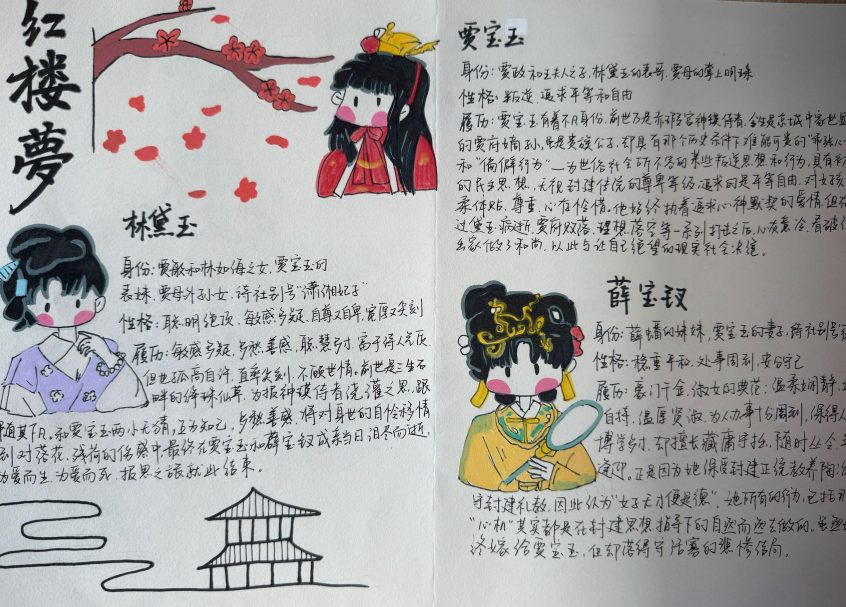 红楼夢
林黛玉
身份:贾敏和林如海之女,贾宝玉的
表妹,贾母外孙女,诗社别号“潇湘妃子”
性格:聪明绝顶,敏感多疑,自尊又自卑,宽厚又尖刻
履历:敏感多疑,多愁善感,聪慧多才,富于诗人气质,
但也孤高自许,直率尖刻,不顾世情。前世是三生石
畔的绛珠仙草,为报神瑛侍者浇灌之恩,跟
其下凡。和贾宝玉两小无猜,互为知己,多愁善感,将对身世的自怜移情
到对落花、残荷的伤感中,最终在贾宝玉和薛宝钗成亲当日泪尽而逝,
为爱而生,为爱而死,报恩之旅就此结束。
贾宝玉
身份:贾政和王夫人之子,林黛玉的表哥,贾母的掌上明珠
性格:叛逆,追求平等和自由
履历:贾宝玉有着不凡身份,前世乃是赤瑕宫神瑛侍者,今生是京城中富贵
的贾府嫡孙,虽是贵族公子,却具有那个历史条件下难能可贵的“
和“偏僻行为”——为世俗社会所不容的某些叛逆思想和行为,具有
的民主思想,无视封建传统的尊卑等级,追求的是平等自由,对女孩
柔体贴、尊重,心存怜惜。他始终执着追求心神默契的爱情,但在
过黛玉病逝、贾府败落、理想落空等一系列打击之后,心灰意冷,看破
出家做了和尚,以此与让自己绝望的现实社会决绝。
薛宝钗
身份:薛蟠的妹妹,贾宝玉的妻子,诗社别号
性格:稳重平和,处事周到,安分守己
履历:豪门千金,淑女的典范;温柔娴静,
自持,温厚贤淑,为人办事十分周到,深得人
博学多才,却擅长藏庸守拙,随时从分,
正是因为她深受封建正统教养陶
守封建礼教,因此认为“女子无才便是德”。她所有的行为,包括
“心机”其实都是在封建思想指导下的自然而然去做的。虽
终嫁给贾宝玉,但却落得守活寡的悲惨结局。